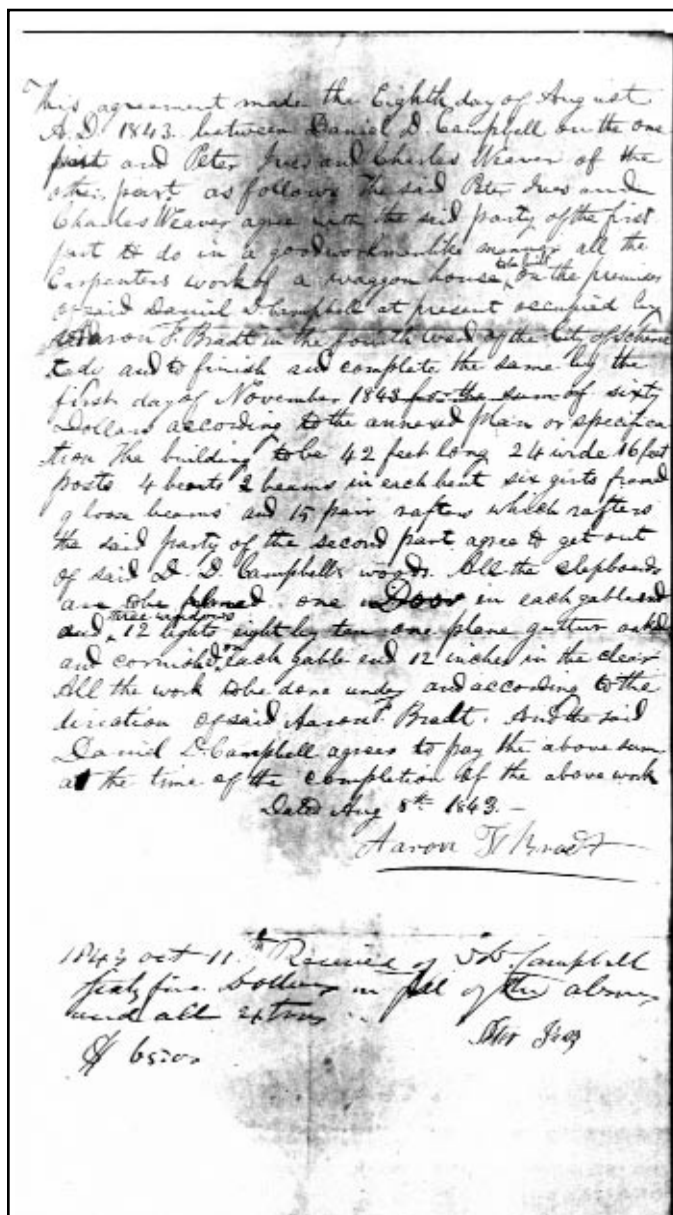 This agreement made the Eighth day of August
A.D. 1843. between Daniel D. Campbell on the one
part and Peter Ives and Charles Weaver of the
other part. as follows The said Peter Ives and
Charles Weaver agree with the said party of the first
part to do in a good workmenlike manner all the
Carpenters work of a waggon house to be built on the premises
of said Daniel D. Campbell at present occupied by
Aaron F. Bradt in the fourth ward of the City of Schene
tady and to finish and complete the same by the
first day of November 1843 for the sum of sixty
Dollars according to the annexed plan or specifica
tion The building to be 42 feet long 24 wide 16 feet
posts 4 bents 2 beams in each bent six girts framd
9 loose beams and 15 pair rafters which rafters
the said party of the second part agree to get out
of said D. D. Campbells woods. All the clapboards
are to be one Door in each gable end
and three windows 12 lights eight by ten one plane gutter
and cornish on each gable end 12 inches in the clear
All the work to be done under and according to the
direction of said Aaron F. Bradt. And the said
Daniel D. Campbell agrees to pay the above sum
at the time of the completion of the above work
Dated Aug 8th 1843. —
Aaron F Bradt
1843 oct 11th Received of D D. Campbell
sixty five Dollars in full of the above
and all extras
$ 65.00